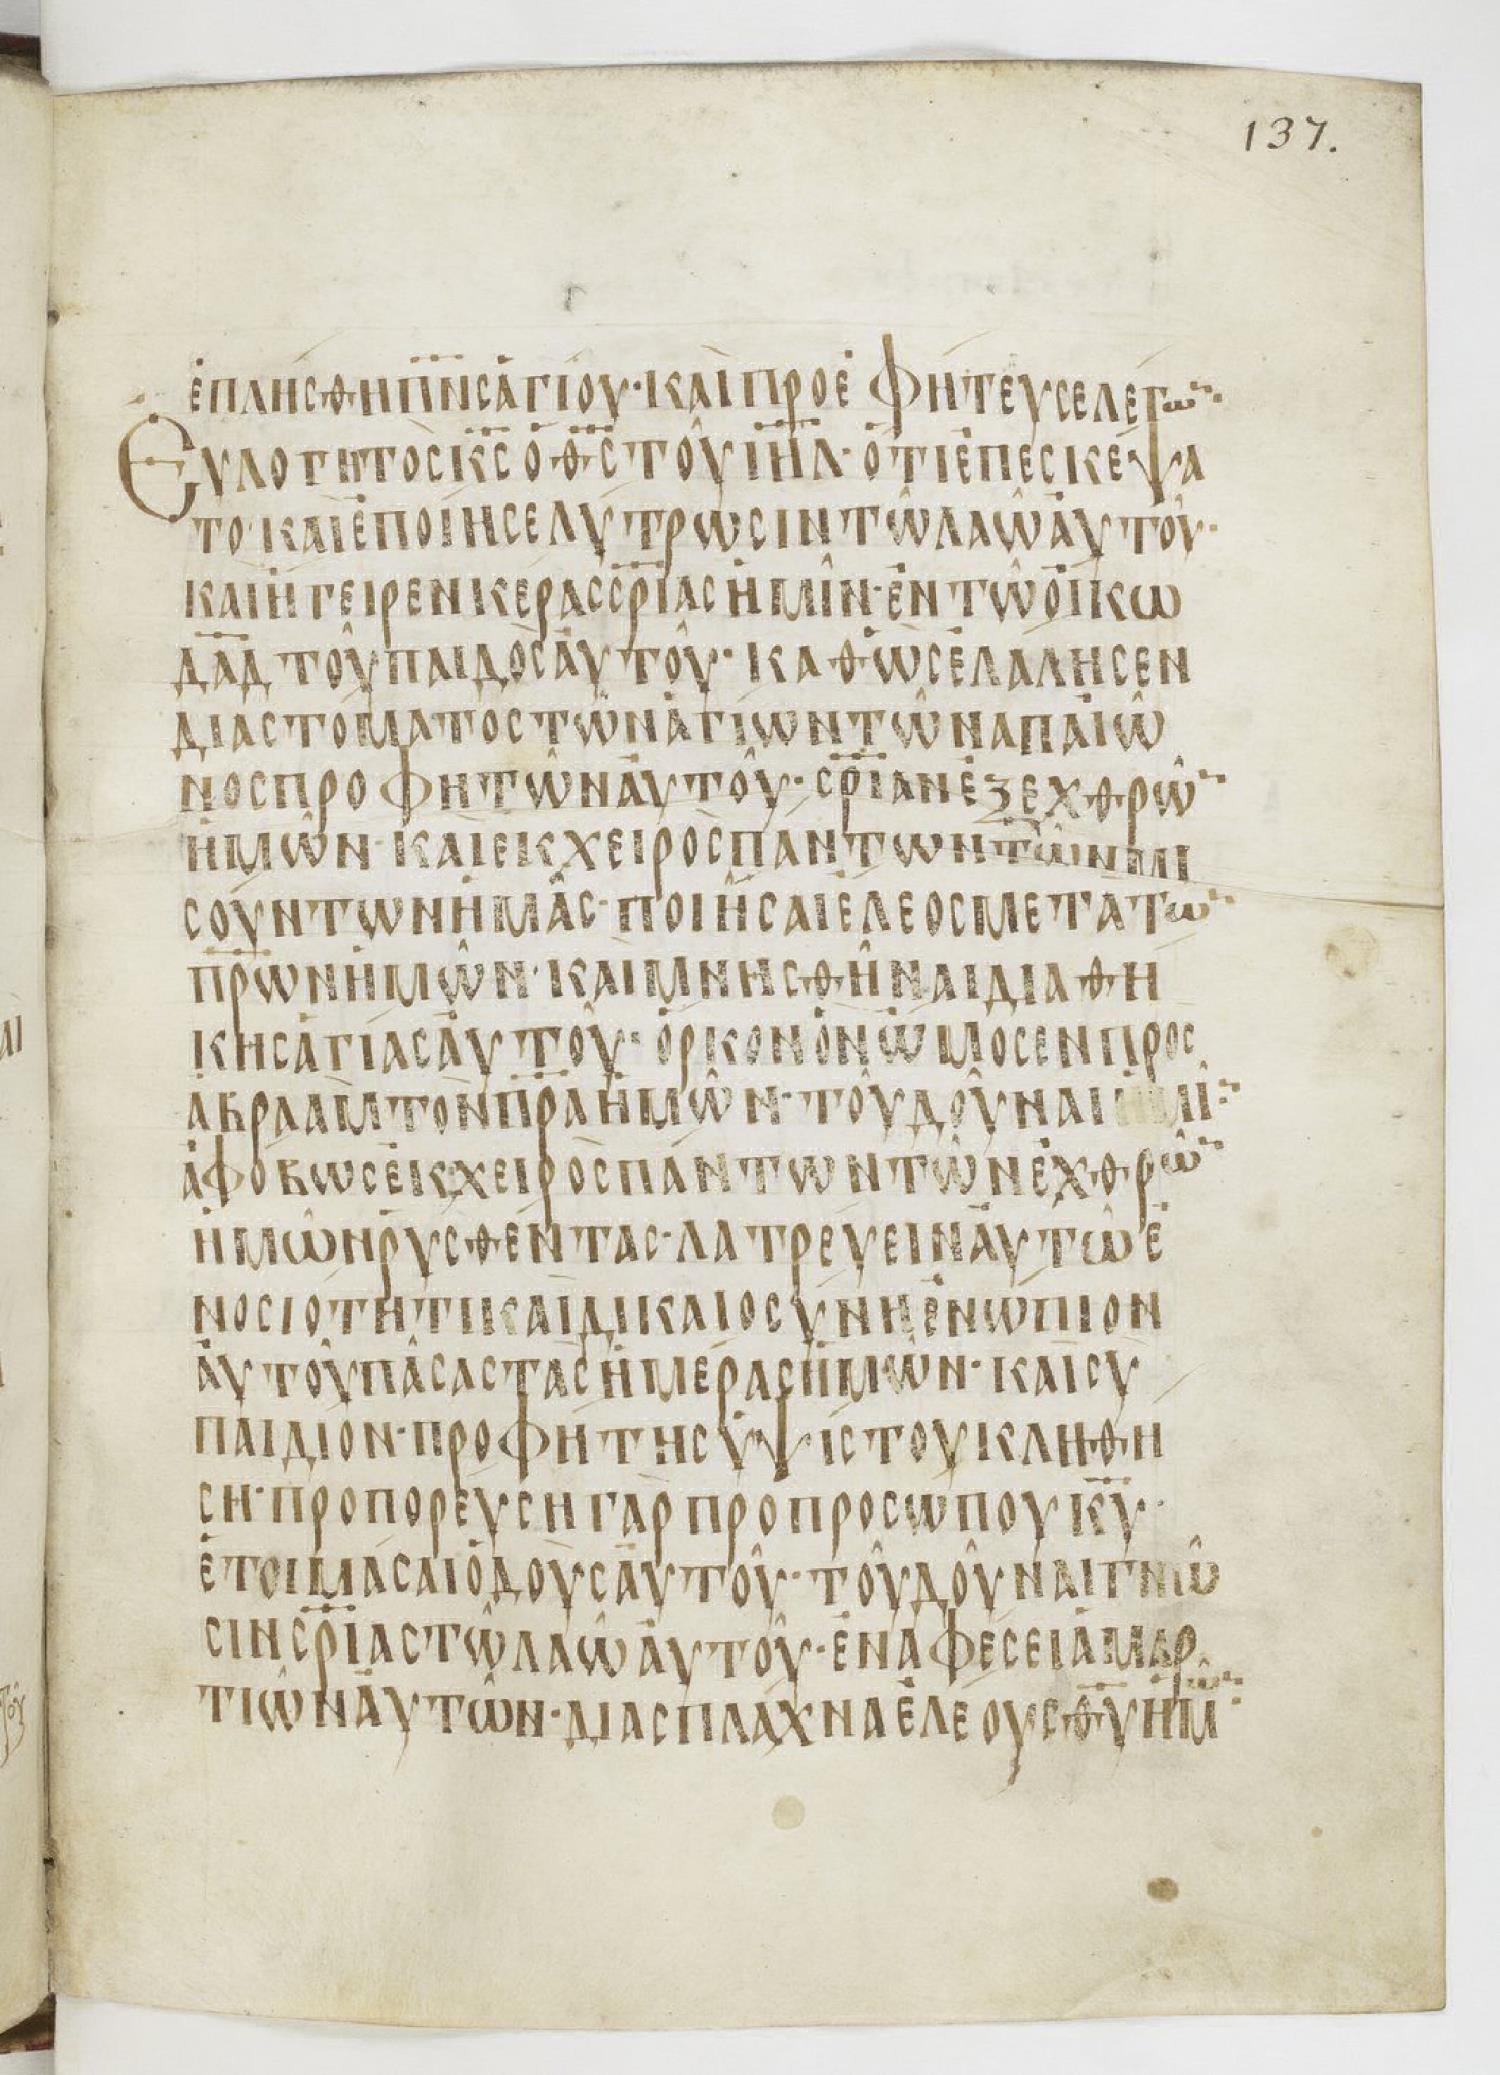 137.
ἐπλήσθη π̅ν̅ς ἁγίου· καὶ προεφήτευσε λέγω̅
Εὐλογητὸς κ̅ς ὁ θ̅ς τοῦ ι̅η̅λ· ὅτι ἐπεσκέψα
το· καὶ ἐποίησε λύτρωσιν τῶ λαῶ αὐτοῦ·
καὶ ἤγειρεν κέρας σ̅ρ̅ιας ἡμῖν· ἐν τῶ οἴκω
δ̅α̅δ τοῦ παιδὸς αὐτοῦ· καθὼς ἐλάλησεν
διὰ στόματος τῶν ἁγίων τῶν ἀπ αἰῶ
νος προφητῶν αὐτοῦ· σ̅ρ̅ιαν ἐξ ἐχθρῶ̅
ἡμῶν· καὶ ἐκ χειρὸς πάντων τῶν μι
σούντων ἡμᾶς· ποιῆσαι ἔλεος μετὰ τῶ̅
π̅ρ̅ων ἡμῶν· καὶ μνησθῆναι διαθή
κης ἁγίας αὐτοῦ· ὅρκον ὃν ὤμοσεν προς
αβραὰμ τὸν π̅ρ̅α ἡμῶν· τοῦ δοῦναι ἡμῖ̅
ἀφόβως ἐκ χειρὸς πάντων τῶν ἐχθρῶ̅
ἡμῶν ῥυσθέντας· λατρεύειν αὐτῶ ἐ
ν ὁσιότητι καὶ δικαιοσύνη ἐνώπιον
αὐτοῦ πάσας τὰς ἡμέρας ἡμῶν· καὶ σὺ
παιδίον· προφήτης ὑψίστου κληθή
ση· προπορεύση γὰρ πρὸ προσώπου κ̅υ·
ἑτοιμάσαι ὁδοὺς αὐτοῦ· τοῦ δοῦναι γνῶ
σιν σ̅ρ̅ιας τῶ λαῶ αὐτοῦ· ἐν ἀφέσει ἁμαρ
τιῶν αὐτῶν· διὰ σπλάχνα ἐλέους θ̅υ ἡμῶ̅